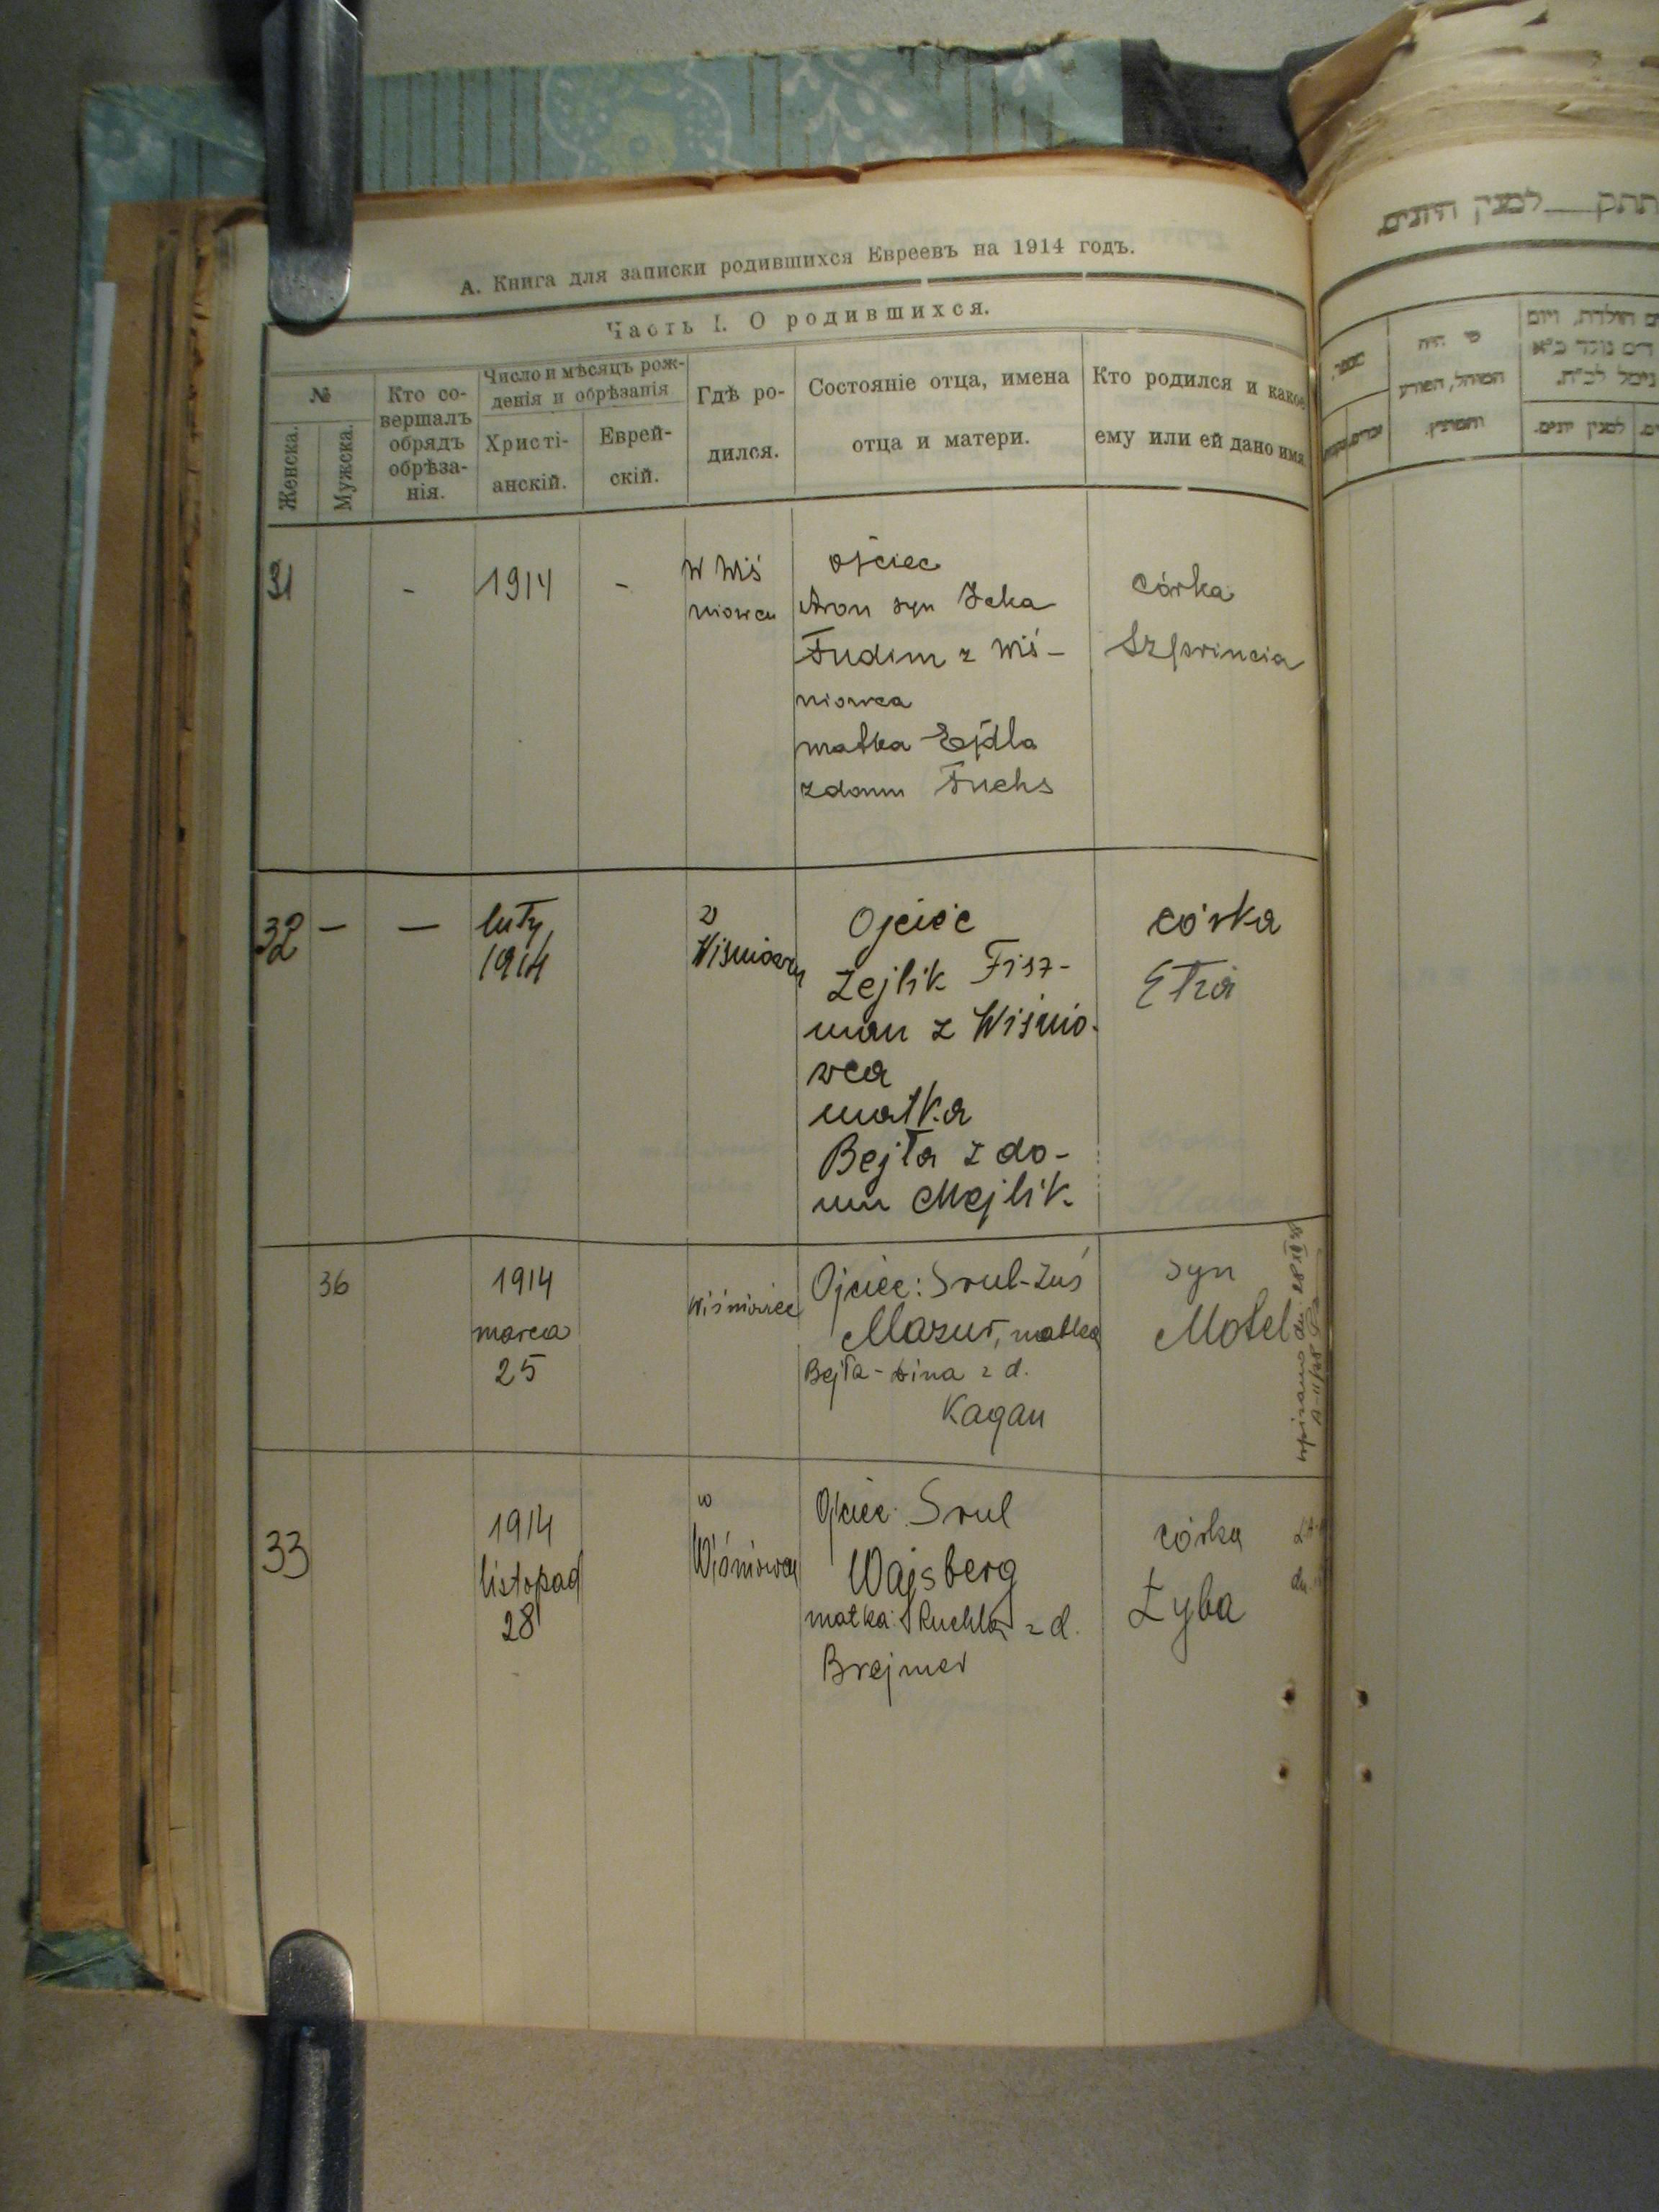 А. Книга для записки родившихся Евреевъ на 1914 годъ.
Часть I. О родившихся.
№
Женска.
Мужска.
Кто со-
вершалъ
обрядъ
обрѣза-
нія.
Число и мѣсяцъ рож-
денія и обрѣзанія
Христі-
анскій.
Еврей-
скій.
Гдѣ ро-
дился.
Состояніе отца, имена
отца и матери.
Кто родился и какое
ему или ей дано имя
31
-
1914
-
W Wiś
niowcu
ojciec
Aron syn Icka
Fudim z Wiś-
niowca
matka Ejdla
z domu Fuchs
córka
Szprincia
32
—
—
luty
1914
w
Wiśniowcu
Ojciec
Zejlik Fisz-
man z Wiśnio-
wca
matka
Bejła z do-
mu Mejlik
córka
Etia
36
1914
marca
25
Wiśniowiec
Ojciec: Srul-Zuś
Mazur, matka
Bejła-Dina z d.
Kagan
syn
Motel
wpisano dn.
33
1914
listopad
28
w
Wiśniowcu
Ojciec: Srul
Wajsberg
matka: Ruchla z d.
Brejmer
córka
Łyba
dn.
תתק לסנין היונים
מי היה
המוהל, הפורע
והמוצץ.